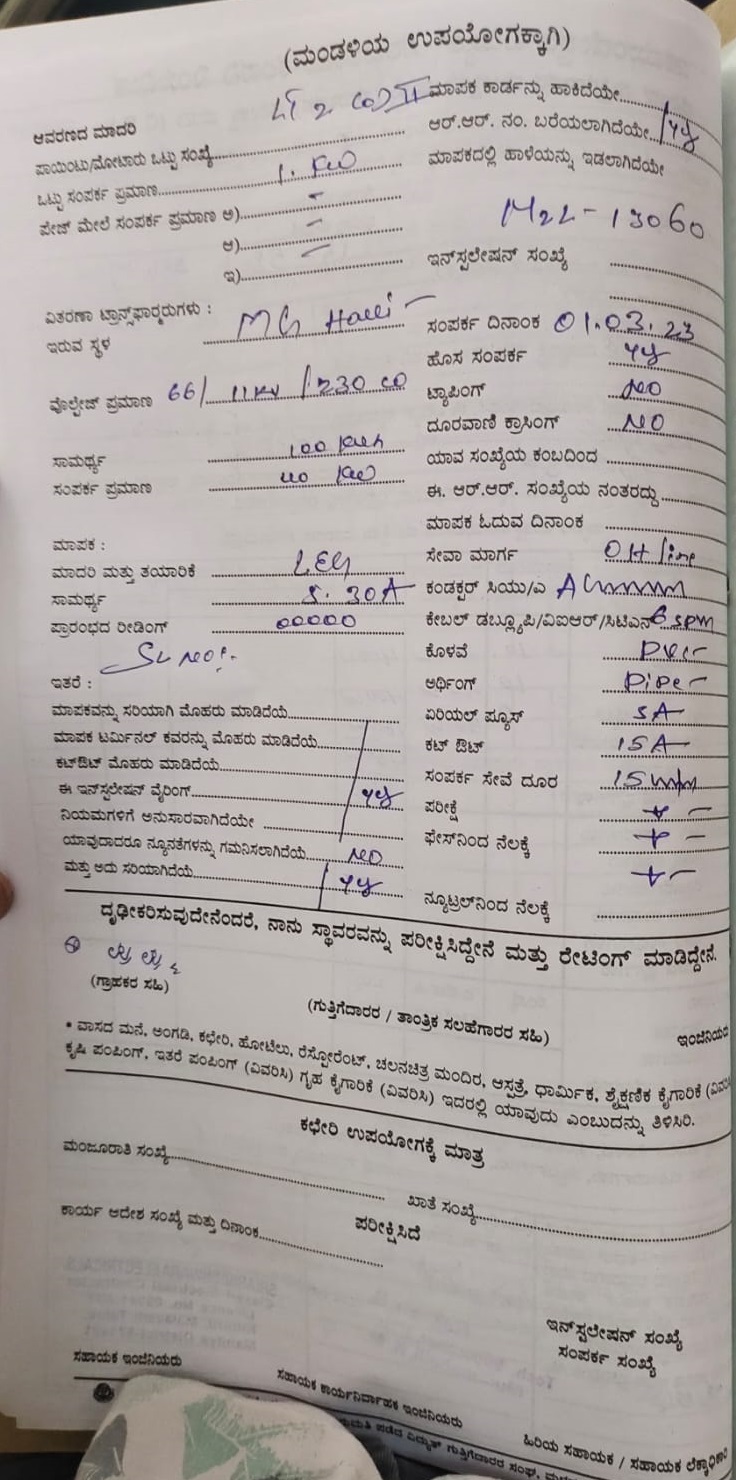 (ಮಂಡಳಿಯ ಉಪಯೋಗಕ್ಕಾಗಿ)
ಆವರಣದ ಮಾದರಿ LT 2
ಪಾಯಿಂಟು/ಮೋಟಾರು ಒಟ್ಟು ಸಂಖ್ಯೆ
ಒಟ್ಟು ಸಂಪರ್ಕ ಪ್ರಮಾಣ
ಪೇಜ್ ಮೇಲೆ ಸಂಪರ್ಕ ಪ್ರಮಾಣ ಅ)
ಆ)
ಇ)
ವಿತರಣಾ ಟ್ರಾನ್ಸ್‌ಫಾರ್‍ಮರುಗಳು :
ಇರುವ ಸ್ಥಳ MG Halli
ವೊಲ್ಟೇಜ್ ಪ್ರಮಾಣ 66/11KV/230
ಸಾಮರ್ಥ್ಯ 100
ಸಂಪರ್ಕ ಪ್ರಮಾಣ
ಮಾಪಕ :
ಮಾದರಿ ಮತ್ತು ತಯಾರಿಕೆ
ಸಾಮರ್ಥ್ಯ 5.30A
ಪ್ರಾರಂಭದ ರೀಡಿಂಗ್ 00000
SL NO:-
ಇತರೆ :
ಮಾಪಕವನ್ನು ಸರಿಯಾಗಿ ಮೊಹರು ಮಾಡಿದೆಯೆ
ಮಾಪಕ ಟರ್ಮಿನಲ್ ಕವರನ್ನು ಮೊಹರು ಮಾಡಿದೆಯೆ
ಕಟ್‌ಔಟ್ ಮೊಹರು ಮಾಡಿದೆಯೆ
ಈ ಇನ್‌ಸ್ಟಲೇಷನ್ ವೈರಿಂಗ್
ನಿಯಮಗಳಿಗೆ ಅನುಸಾರವಾಗಿದೆಯೇ
ಯಾವುದಾದರೂ ನ್ಯೂನತೆಗಳನ್ನು ಗಮನಿಸಲಾಗಿದೆಯೆ NO
ಮತ್ತು ಅದು ಸರಿಯಾಗಿದೆಯೆ
ಮಾಪಕ ಕಾರ್ಡನ್ನು ಹಾಕಿದೆಯೇ
ಆರ್.ಆರ್. ನಂ. ಬರೆಯಲಾಗಿದೆಯೇ
ಮಾಪಕದಲ್ಲಿ ಹಾಳೆಯನ್ನು ಇಡಲಾಗಿದೆಯೇ
-13060
ಇನ್‌ಸ್ಟಲೇಷನ್ ಸಂಖ್ಯೆ
ಸಂಪರ್ಕ ದಿನಾಂಕ 01.03.23
ಹೊಸ ಸಂಪರ್ಕ
ಟ್ಯಾಪಿಂಗ್ NO
ದೂರವಾಣಿ ಕ್ರಾಸಿಂಗ್ NO
ಯಾವ ಸಂಖ್ಯೆಯ ಕಂಬದಿಂದ
ಈ. ಆರ್.ಆರ್. ಸಂಖ್ಯೆಯ ನಂತರದ್ದು
ಮಾಪಕ ಓದುವ ದಿನಾಂಕ
ಸೇವಾ ಮಾರ್ಗ OH line
ಕಂಡಕ್ಟರ್ ಸಿಯು/ಎ
ಕೇಬಲ್ ಡಬ್ಲ್ಯೂಪಿ/ವಿಐಆರ್/ಸಿಟಿಎಸ್
ಕೊಳವೆ
ಅರ್ಥಿಂಗ್ Pipe
ಏರಿಯಲ್ ಫ್ಯೂಸ್ 5A
ಕಟ್ ಔಟ್ 15A
ಸಂಪರ್ಕ ಸೇವೆ ದೂರ
ಪರೀಕ್ಷೆ + -
ಫೇಸ್‌ನಿಂದ ನೆಲಕ್ಕೆ + -
+ -
ನ್ಯೂಟ್ರಲ್‌ನಿಂದ ನೆಲಕ್ಕೆ
ದೃಢೀಕರಿಸುವುದೇನೆಂದರೆ, ನಾನು ಸ್ಥಾವರವನ್ನು ಪರೀಕ್ಷಿಸಿದ್ದೇನೆ ಮತ್ತು ರೇಟಿಂಗ್ ಮಾಡಿದ್ದೇನೆ.
(ಗ್ರಾಹಕರ ಸಹಿ)
(ಗುತ್ತಿಗೆದಾರರ / ತಾಂತ್ರಿಕ ಸಲಹೆಗಾರರ ಸಹಿ)
ಇಂಜಿನಿಯರ
* ವಾಸದ ಮನೆ, ಅಂಗಡಿ, ಕಛೇರಿ, ಹೋಟೆಲು, ರೆಸ್ಟೋರೆಂಟ್, ಚಲನಚಿತ್ರ ಮಂದಿರ, ಆಸ್ಪತ್ರೆ, ಧಾರ್ಮಿಕ, ಶೈಕ್ಷಣಿಕ ಕೈಗಾರಿಕೆ
ಕೃಷಿ ಪಂಪಿಂಗ್, ಇತರೆ ಪಂಪಿಂಗ್ (ವಿವರಿಸಿ) ಗೃಹ ಕೈಗಾರಿಕೆ (ವಿವರಿಸಿ) ಇದರಲ್ಲಿ ಯಾವುದು ಎಂಬುದನ್ನು ತಿಳಿಸಿರಿ.
ಕಛೇರಿ ಉಪಯೋಗಕ್ಕೆ ಮಾತ್ರ
ಮಂಜೂರಾತಿ ಸಂಖ್ಯೆ
ಖಾತೆ ಸಂಖ್ಯೆ
ಕಾರ್ಯ ಆದೇಶ ಸಂಖ್ಯೆ ಮತ್ತು ದಿನಾಂಕ
ಪರೀಕ್ಷಿಸಿದೆ
ಇನ್‌ಸ್ಟಲೇಷನ್ ಸಂಖ್ಯೆ
ಸಂಪರ್ಕ ಸಂಖ್ಯೆ
ಸಹಾಯಕ ಇಂಜಿನಿಯರು
ಸಹಾಯಕ ಕಾರ್ಯನಿರ್ವಾಹಕ ಇಂಜಿನಿಯರು
ಹಿರಿಯ ಸಹಾಯಕ / ಸಹಾಯಕ ಲೆಕ್ಕಾಧಿಕಾರಿ
ಪಡೆದ ವಿದ್ಯುತ್ ಗುತ್ತಿಗೆದಾರರ ಸಂಘ,